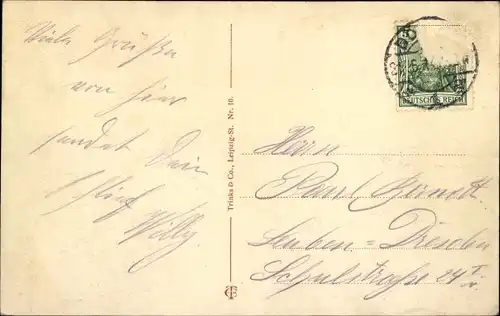 Viele Grüße
von hier
sendet Dein
Willy.
Trinks & Co., Leipzig-St. Nr. 10.
DEUTSCHES REICH
Herrn
Paul
Leuben=Dresden
Schulstraße 24 I